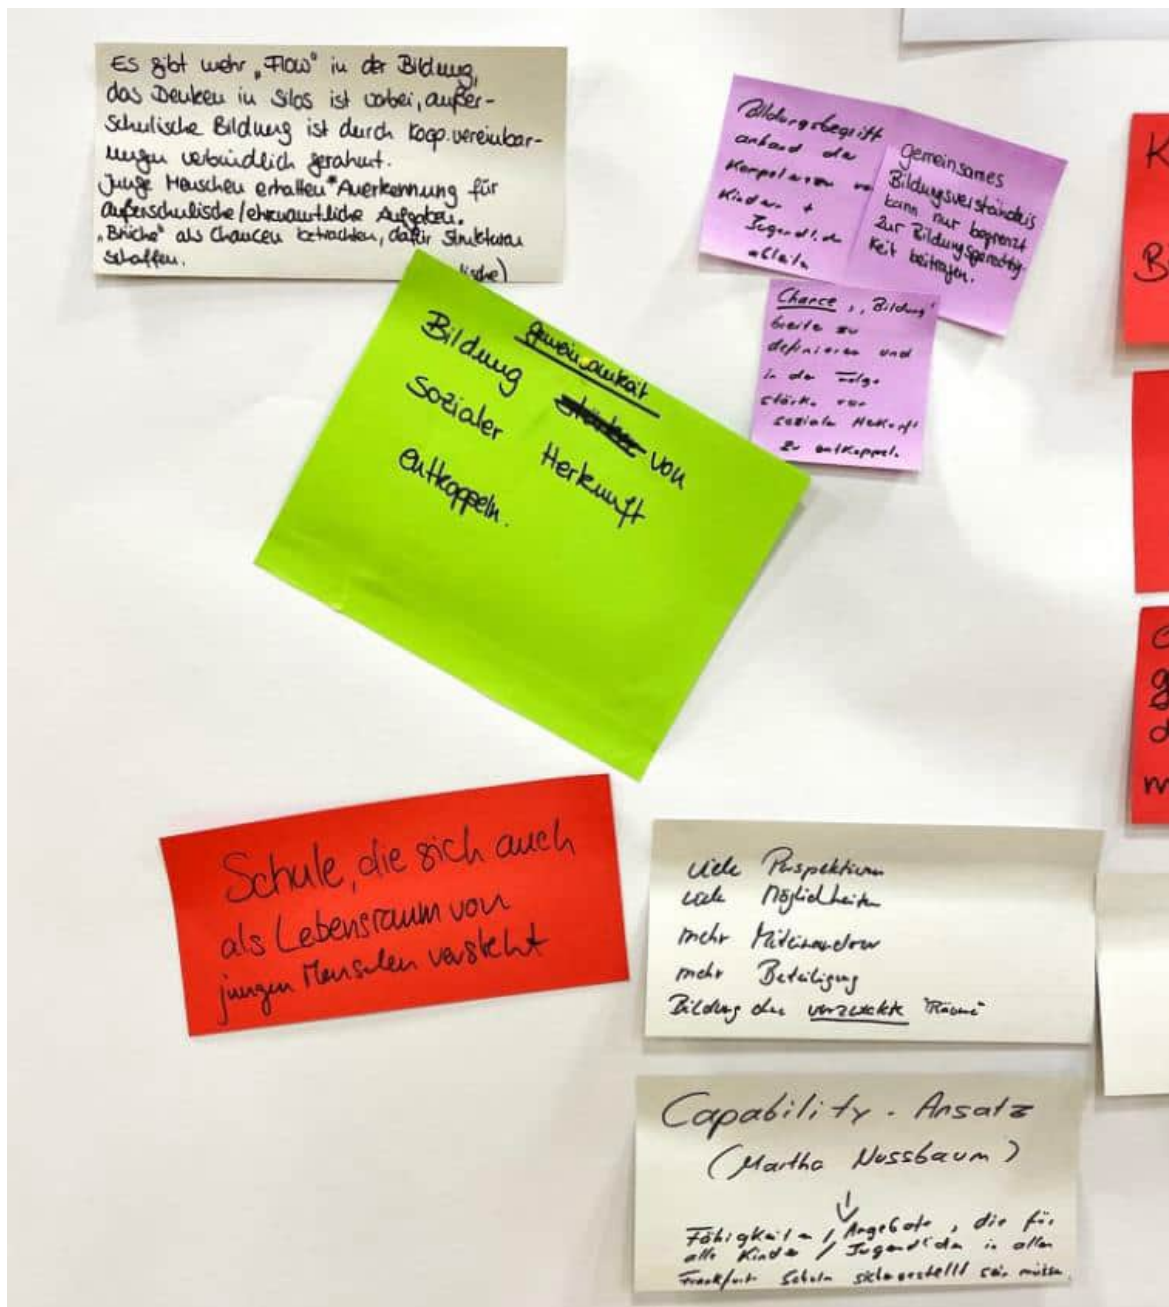 Es gibt mehr „Flow" in der Bildung,
das Denken in Silos ist vorbei, außer-
schulische Bildung ist durch Koop.vereinbar-
ungen verbindlich gerahmt.
Junge Menschen erhalten Anerkennung für
außerschulische/ehrenamtliche Aufgaben.
„Brüche" als Chancen betrachten, dafür Strukturen
schaffen.
lische)
Bildungsbegriff
anhand der
Kompetenzen von
Kindern +
Jugendlichen
ableiten
gemeinsames
Bildungsverständnis
kann nur begrenzt
zur Bildungsgerechtig-
keit beitragen.
Chance, „Bildung"
breite zu
definieren und
in der Folge
stärker von
sozialer Herkunft
zu entkoppeln.
gemeinsamkeit
Bildung von
sozialer Herkunft
entkoppeln.
Schule, die sich auch
als Lebensraum von
jungen Menschen versteht
viele Perspektiven
viele Möglichkeiten
mehr Miteinander
mehr Beteiligung
Bildung der Räume
Capability-Ansatz
(Martha Nussbaum)
↓
Fähigkeiten / Angebote, die für
alle Kinder / Jugendlichen in allen
Frankfurter Schulen sichergestellt sein müssen.
K
B
g
d
m